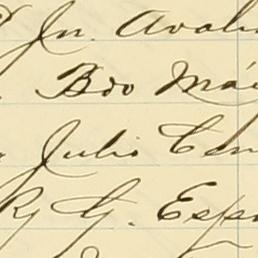 Jn. Avalo
Bdo Má
Julio Cen
Ry G. Esp